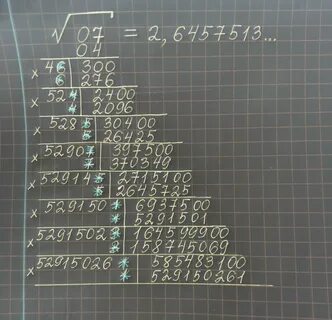 √07 = 2,6457513...
04
× 46 | 300
6 | 276
× 524 | 2400
4 | 2096
× 5285 | 30400
5 | 26425
× 52907 | 397500
7 | 370349
× 529145 | 2715100
5 | 2645725
× 529150* | 6937500
* | 5291501
× 52915023 | 164599900
3 | 158745069
× 52915026* | 585483100
* | 529150261